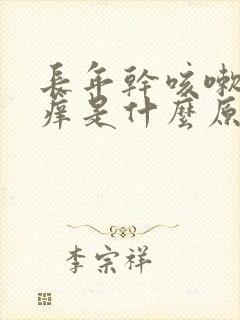 長年幹咳嗽
癢是什麼原
李宗祥